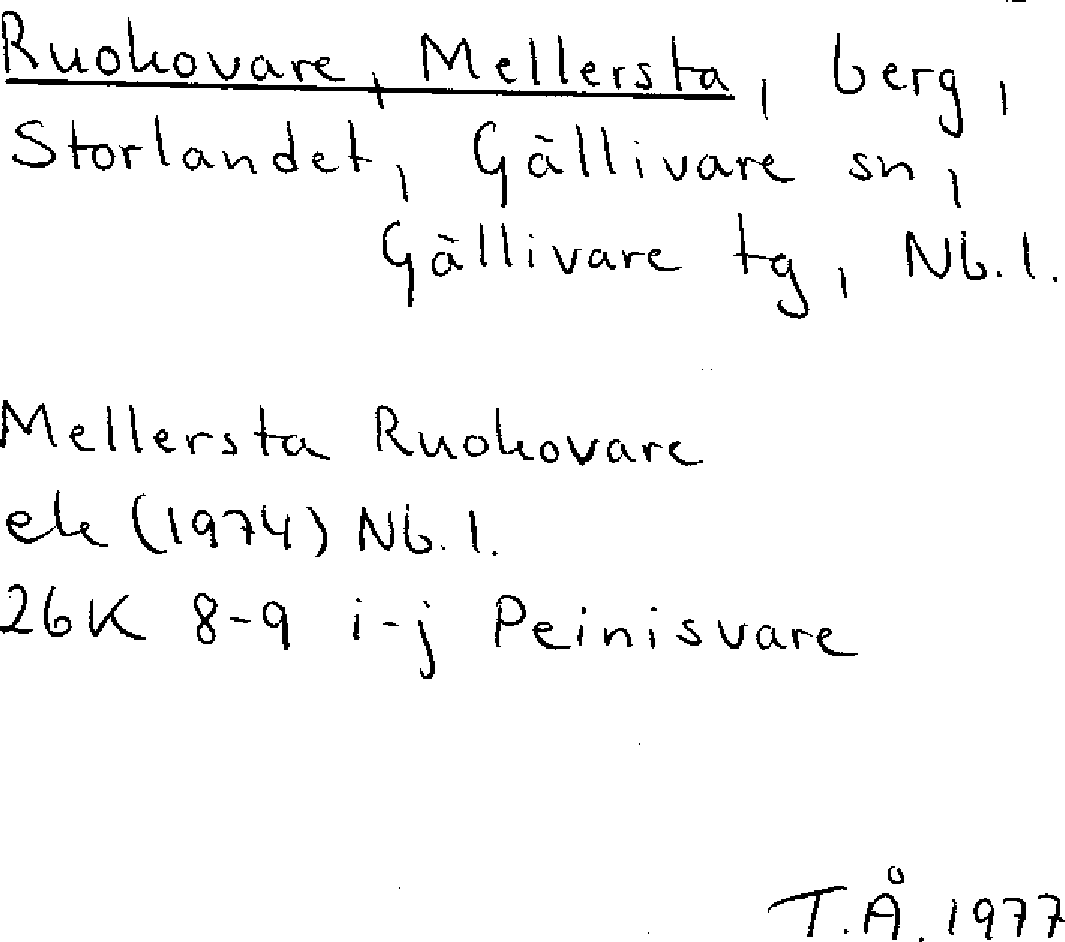 Ruokovare, Mellersta, berg,
Storlandet, Gällivare sn,
Gällivare tg, Nb.l.
Mellersta Ruokovare
ek (1974) Nb.l.
26K 8-9 i-j Peinisvare
T.Å. 1977